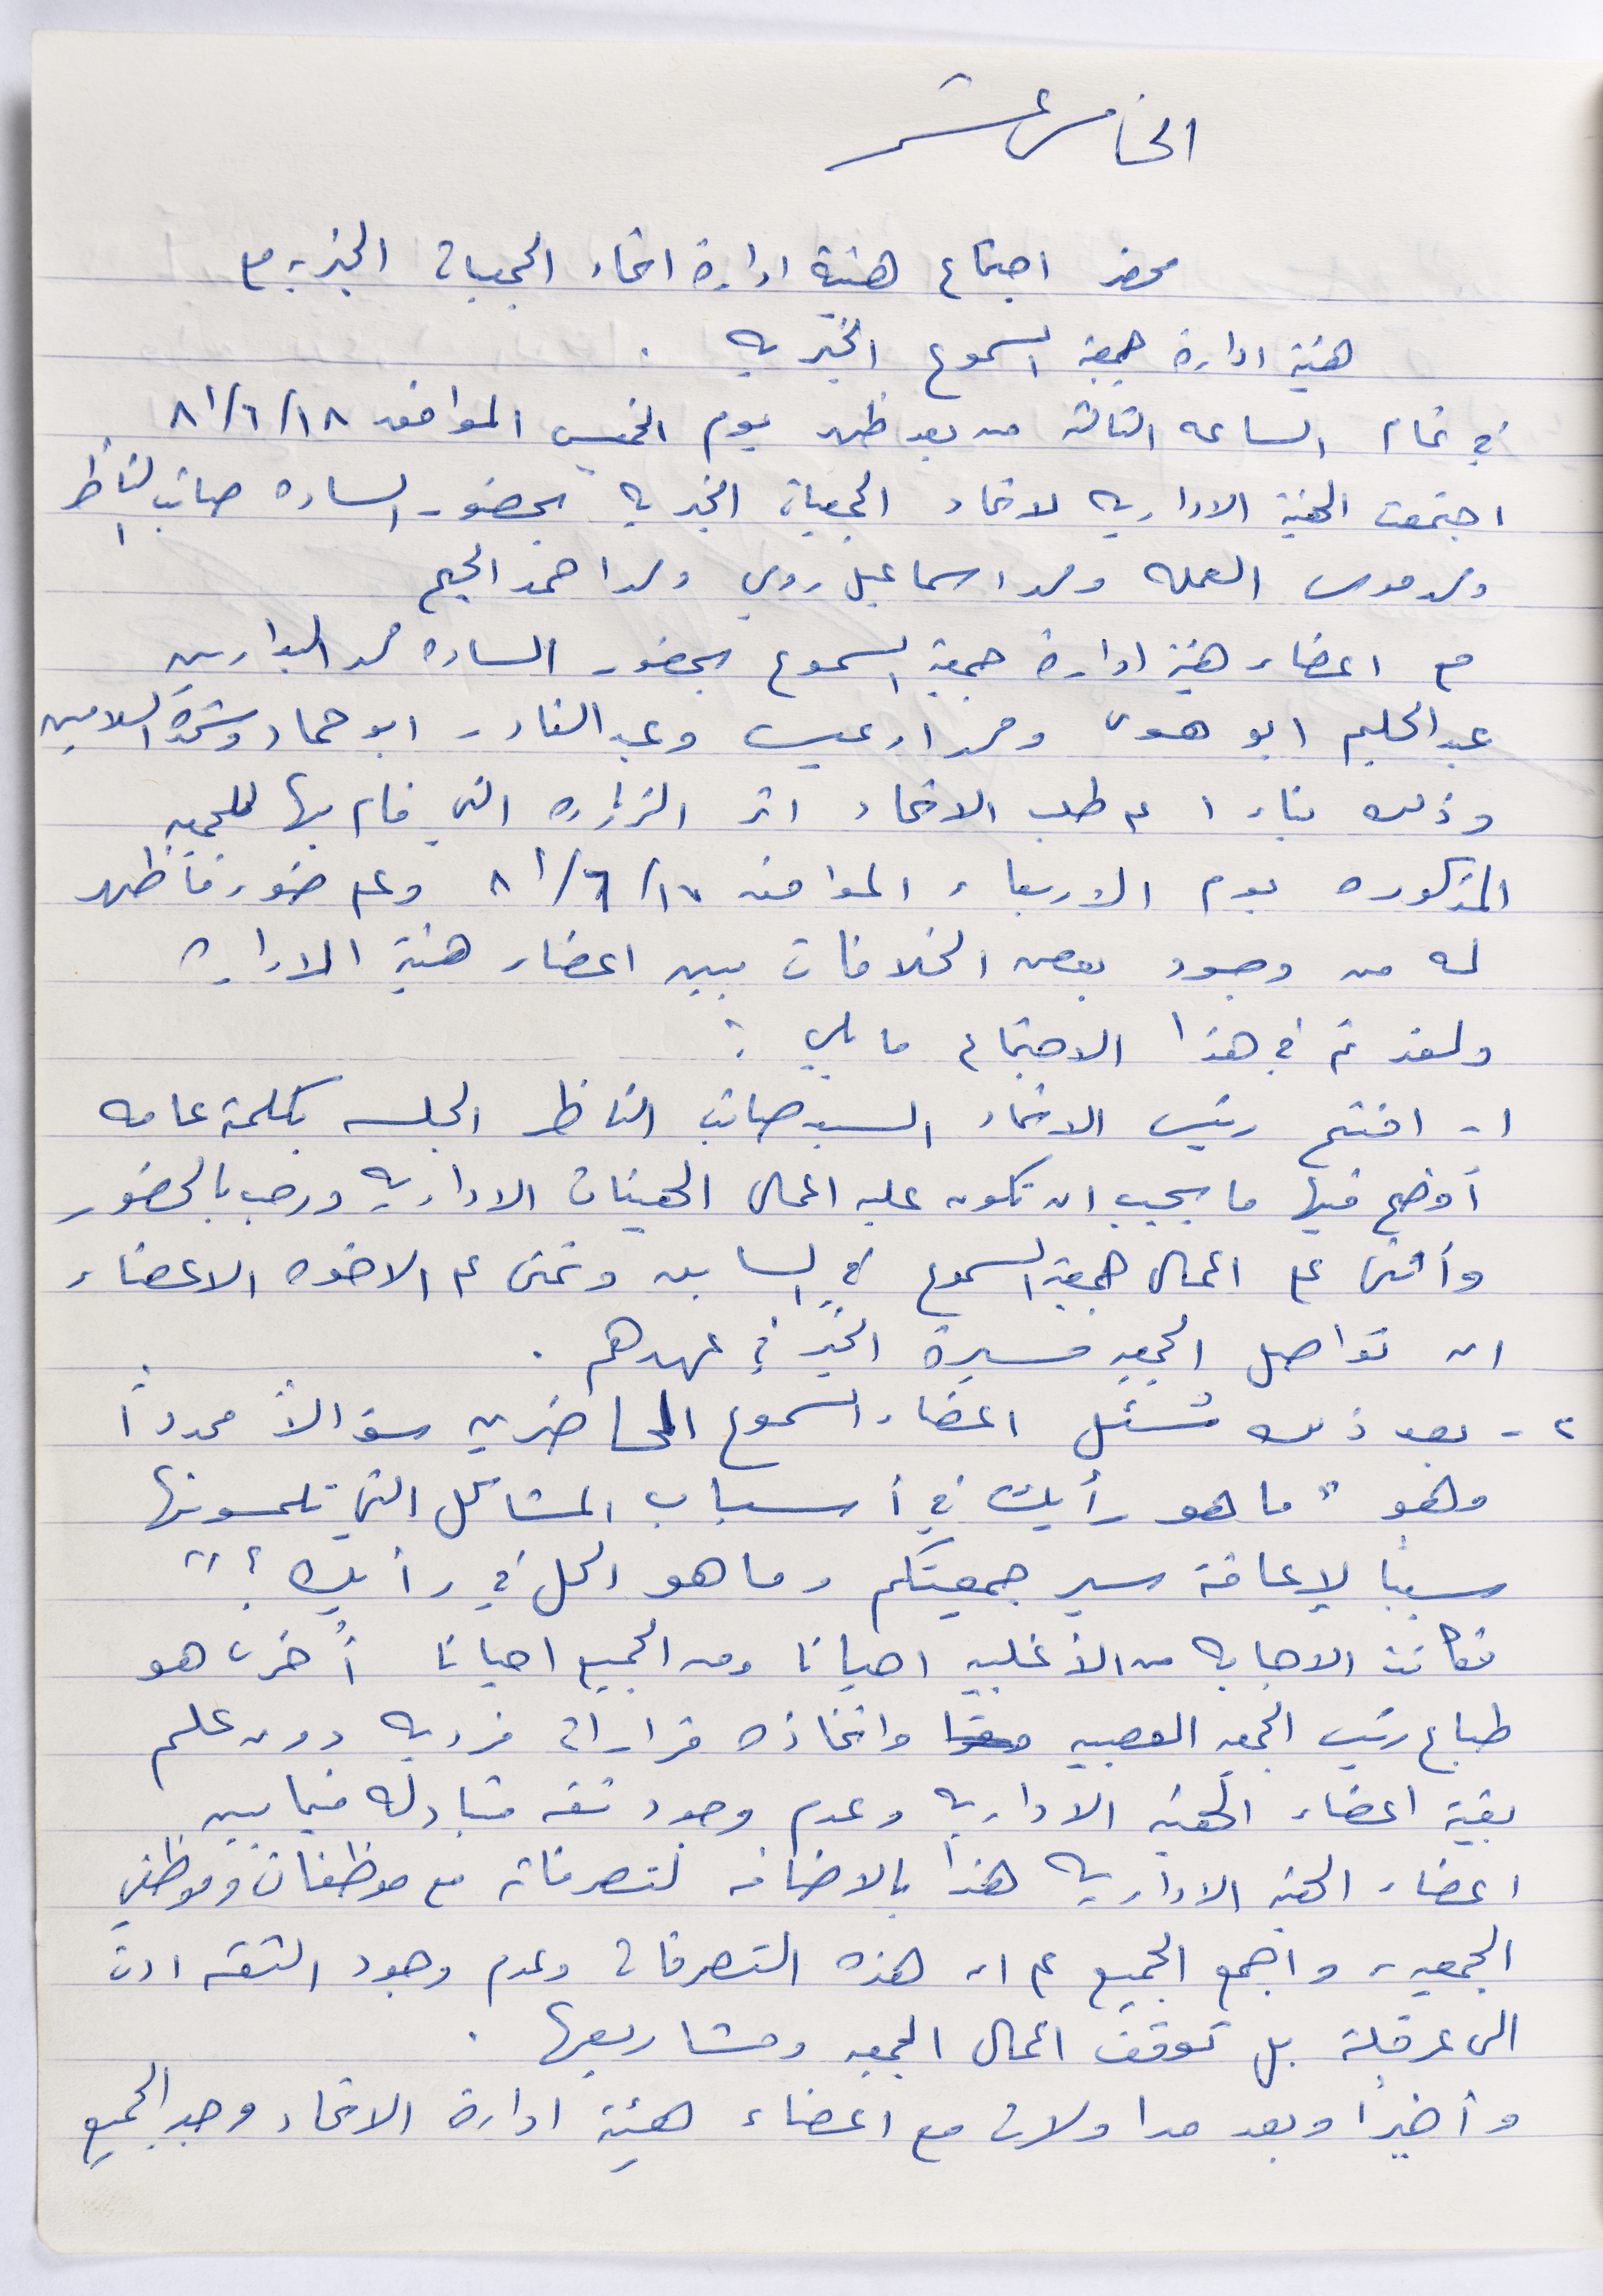 الخامس عشر
محضر اجتماع هيئة ادارة اتحاد الجمعيات الخيريه مع
هيئة ادارة جمعية السموع الخيريه .
في تمام الساعه الثالثة من بعد ظهر يوم الخميس الموافق ١٨/٦/٨١
اجتمعت الهيئة الاداريه لاتحاد الجمعيات الخيريه بحضور الساده صائب الناظر
ومحمد موسى العمله ومحمد اسماعيل رومي ومحمد احمد
مع اعضاء هيئة ادارة جمعية السموع بحضور الساده محمد البدارين
عبد الحليم ابو هوى ومحمد ادعيس وعبد القادر ابو حماد وشحده السلامين
وذلك بناءا على طلب الاتحاد اثر الزياره التي قام بها للجمعيه
المذكوره يوم الاربعاء الموافق ١٧/٦/٨١ وعلى ضوء ما ظهر
له من وجود بعض الخلافات بين اعضاء هيئة الاداره
ولقد تم في هذا الاجتماع ما يلي :
١- افتتح رئيس الاتحاد السيد صائب الناظر الجلسه بكلمة عامه
أوضح فيها ما يجب ان تكون عليه اعمال الهيئات الاداريه ورحب بالحضور
وأثنى على اعمال جمعية السموع في السابق وتمنى على الاخوه الاعضاء
ان تواصل الجمعيه مسيرة الخير في عهدهم .
٢- بعد ذلك سُئل اعضاء السموع الحاضرين سؤالاً محدداً
وهو " ما هو رأيك في أسباب المشاكل التي تلمسونها
سببا لإعاقة سير جمعيتكم وما هو الحل في رأيك ؟ "
فكانت الاجابه من الأغلبيه احيانا ومن الجميع احيانا أخرى هو
طباع رئيس الجمعيه العصبيه واتخاذه قرارات فرديه دون علم
بقية اعضاء الهيئه الاداريه وعدم وجود ثقه متبادله فيما بين
اعضاء الهيئه الاداريه هذا بالاضافه لتصرفاته مع موظفات وموظفي
الجمعيه واجمع الجميع على ان هذه التصرفات وعدم وجود الثقه ادت
الى عرقلة بل توقف اعمال الجمعيه ومشاريعها .
وأخيراً وبعد مداولات مع اعضاء هيئة ادارة الاتحاد وجد الجميع